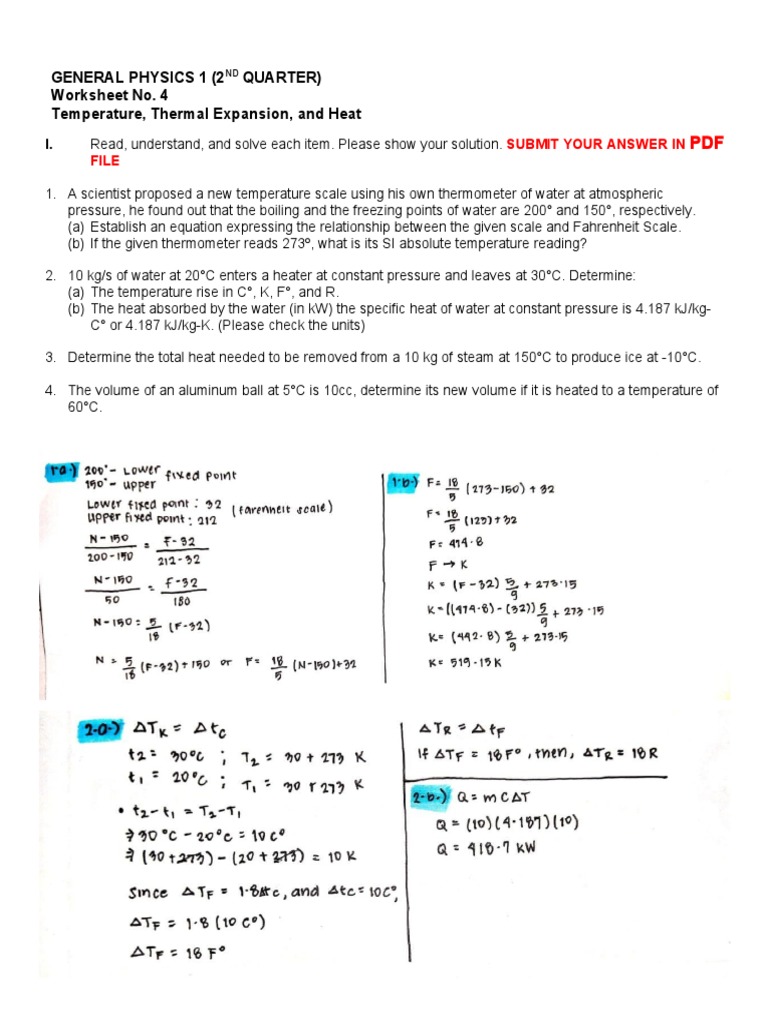 GENERAL PHYSICS 1 (2ND QUARTER)
Worksheet No. 4
Temperature, Thermal Expansion, and Heat
I. Read, understand, and solve each item. Please show your solution. SUBMIT YOUR ANSWER IN PDF
FILE
1. A scientist proposed a new temperature scale using his own thermometer of water at atmospheric
pressure, he found out that the boiling and the freezing points of water are 200° and 150°, respectively.
(a) Establish an equation expressing the relationship between the given scale and Fahrenheit Scale.
(b) If the given thermometer reads 273º, what is its SI absolute temperature reading?
2. 10 kg/s of water at 20°C enters a heater at constant pressure and leaves at 30°C. Determine:
(a) The temperature rise in C°, K, F°, and R.
(b) The heat absorbed by the water (in kW) the specific heat of water at constant pressure is 4.187 kJ/kg-
C° or 4.187 kJ/kg-K. (Please check the units)
3. Determine the total heat needed to be removed from a 10 kg of steam at 150°C to produce ice at -10°C.
4. The volume of an aluminum ball at 5°C is 10cc, determine its new volume if it is heated to a temperature of
60°C.
1.a.) 200° - Lower fixed point
150° - upper
Lower fixed point : 32 (farenheit scale)
upper fixed point : 212
N - 150 / 200 - 150 = F - 32 / 212 - 32
N - 150 / 50 = F - 32 / 180
N - 150 = 5/18 (F - 32)
N = 5/18 (F - 32) + 150 or F = 18/5 (N - 150) + 32
1.b.) F = 18/5 (273 - 150) + 32
F = 18/5 (123) + 32
F = 474.8
F → K
K = (F - 32) 5/9 + 273.15
K = ((474.8) - (32)) 5/9 + 273.15
K = (442.8) 5/9 + 273.15
K = 519.15 K
2-a.) ΔTK = Δtc
t2 = 30°C ; T2 = 30 + 273 K
t1 = 20°C ; T1 = 30 + 273 K
• t2 - t1 = T2 - T1
⇒ 30 °C - 20°C = 10 C°
⇒ (30 + 273) - (20 + 273) = 10 K
Since ΔTF = 1.8Δtc, and Δtc = 10C°,
ΔTF = 1.8 (10 C°)
ΔTF = 18 F°
ΔTR = ΔtF
If ΔTF = 18F°, then, ΔTR = 18R
2-b.) Q = mCΔT
Q = (10)(4.187)(10)
Q = 418.7 kW